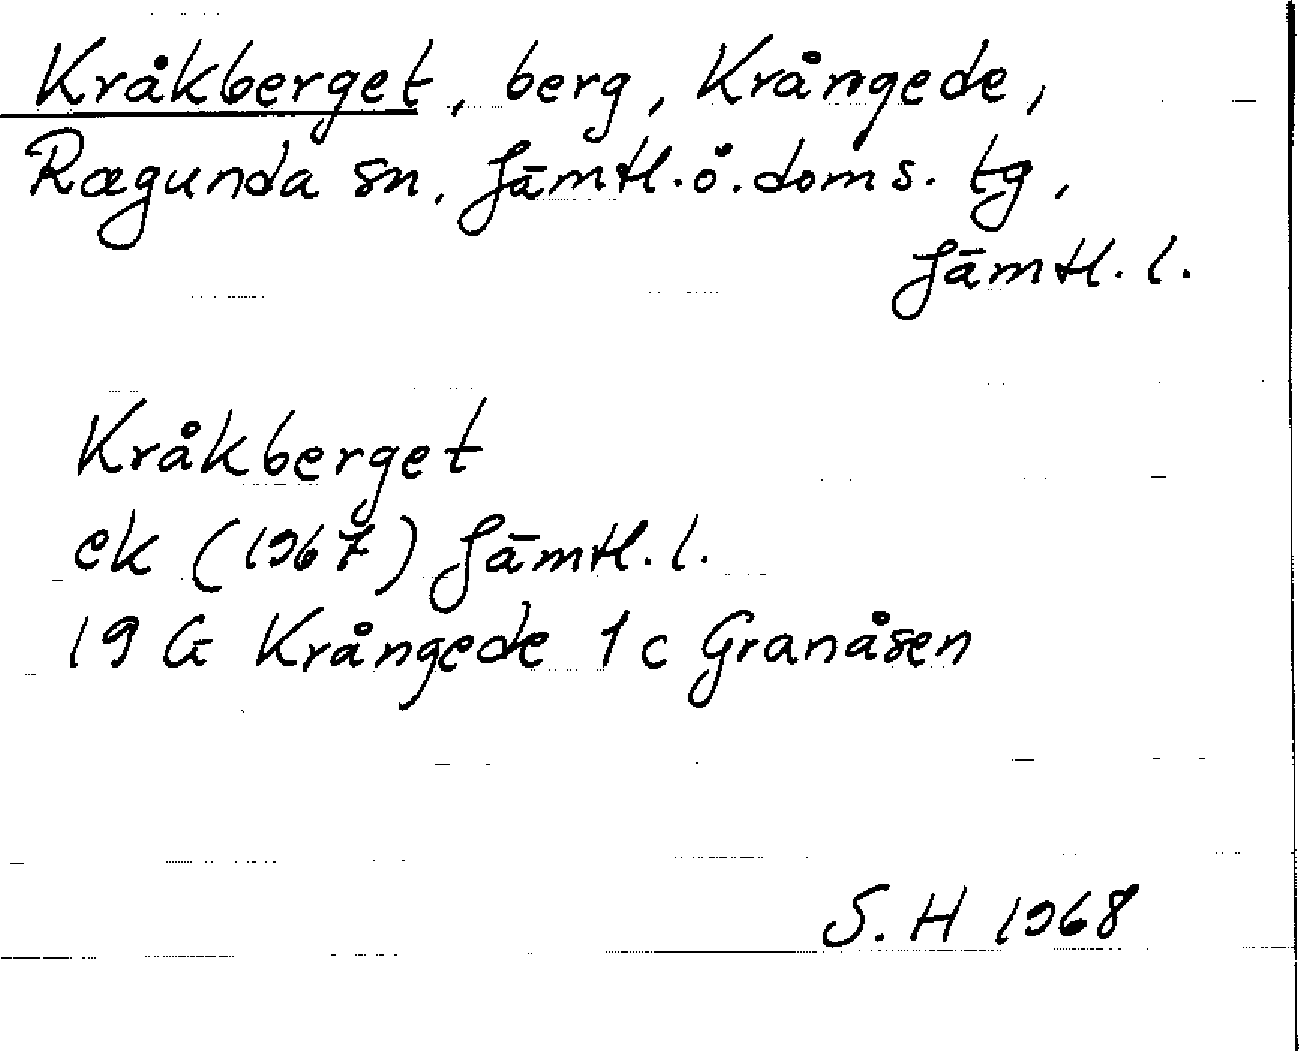 Kråkberget, berg, Krångede,
Ragunda sn. Jämtl.ö.doms. tg,
Jämtl. l.
Kråkberget
ek (1967) Jämtl. l.
19 G Krångede 1c Granåsen
S. H 1968